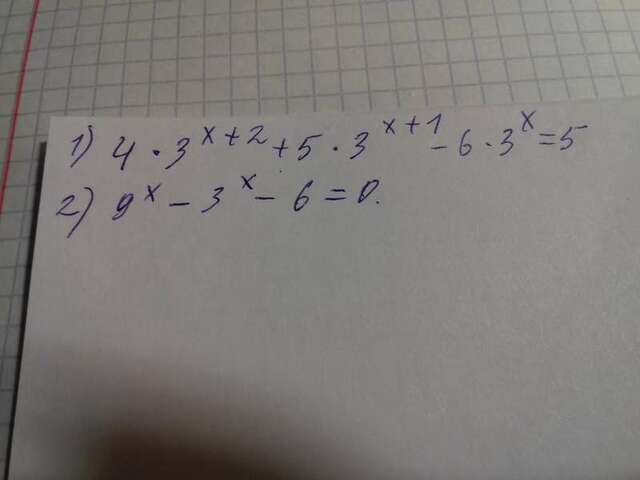 1) 4 · 3^{x+2} + 5 · 3^{x+1} - 6 · 3^x = 5
2) 9^x - 3^x - 6 = 0.